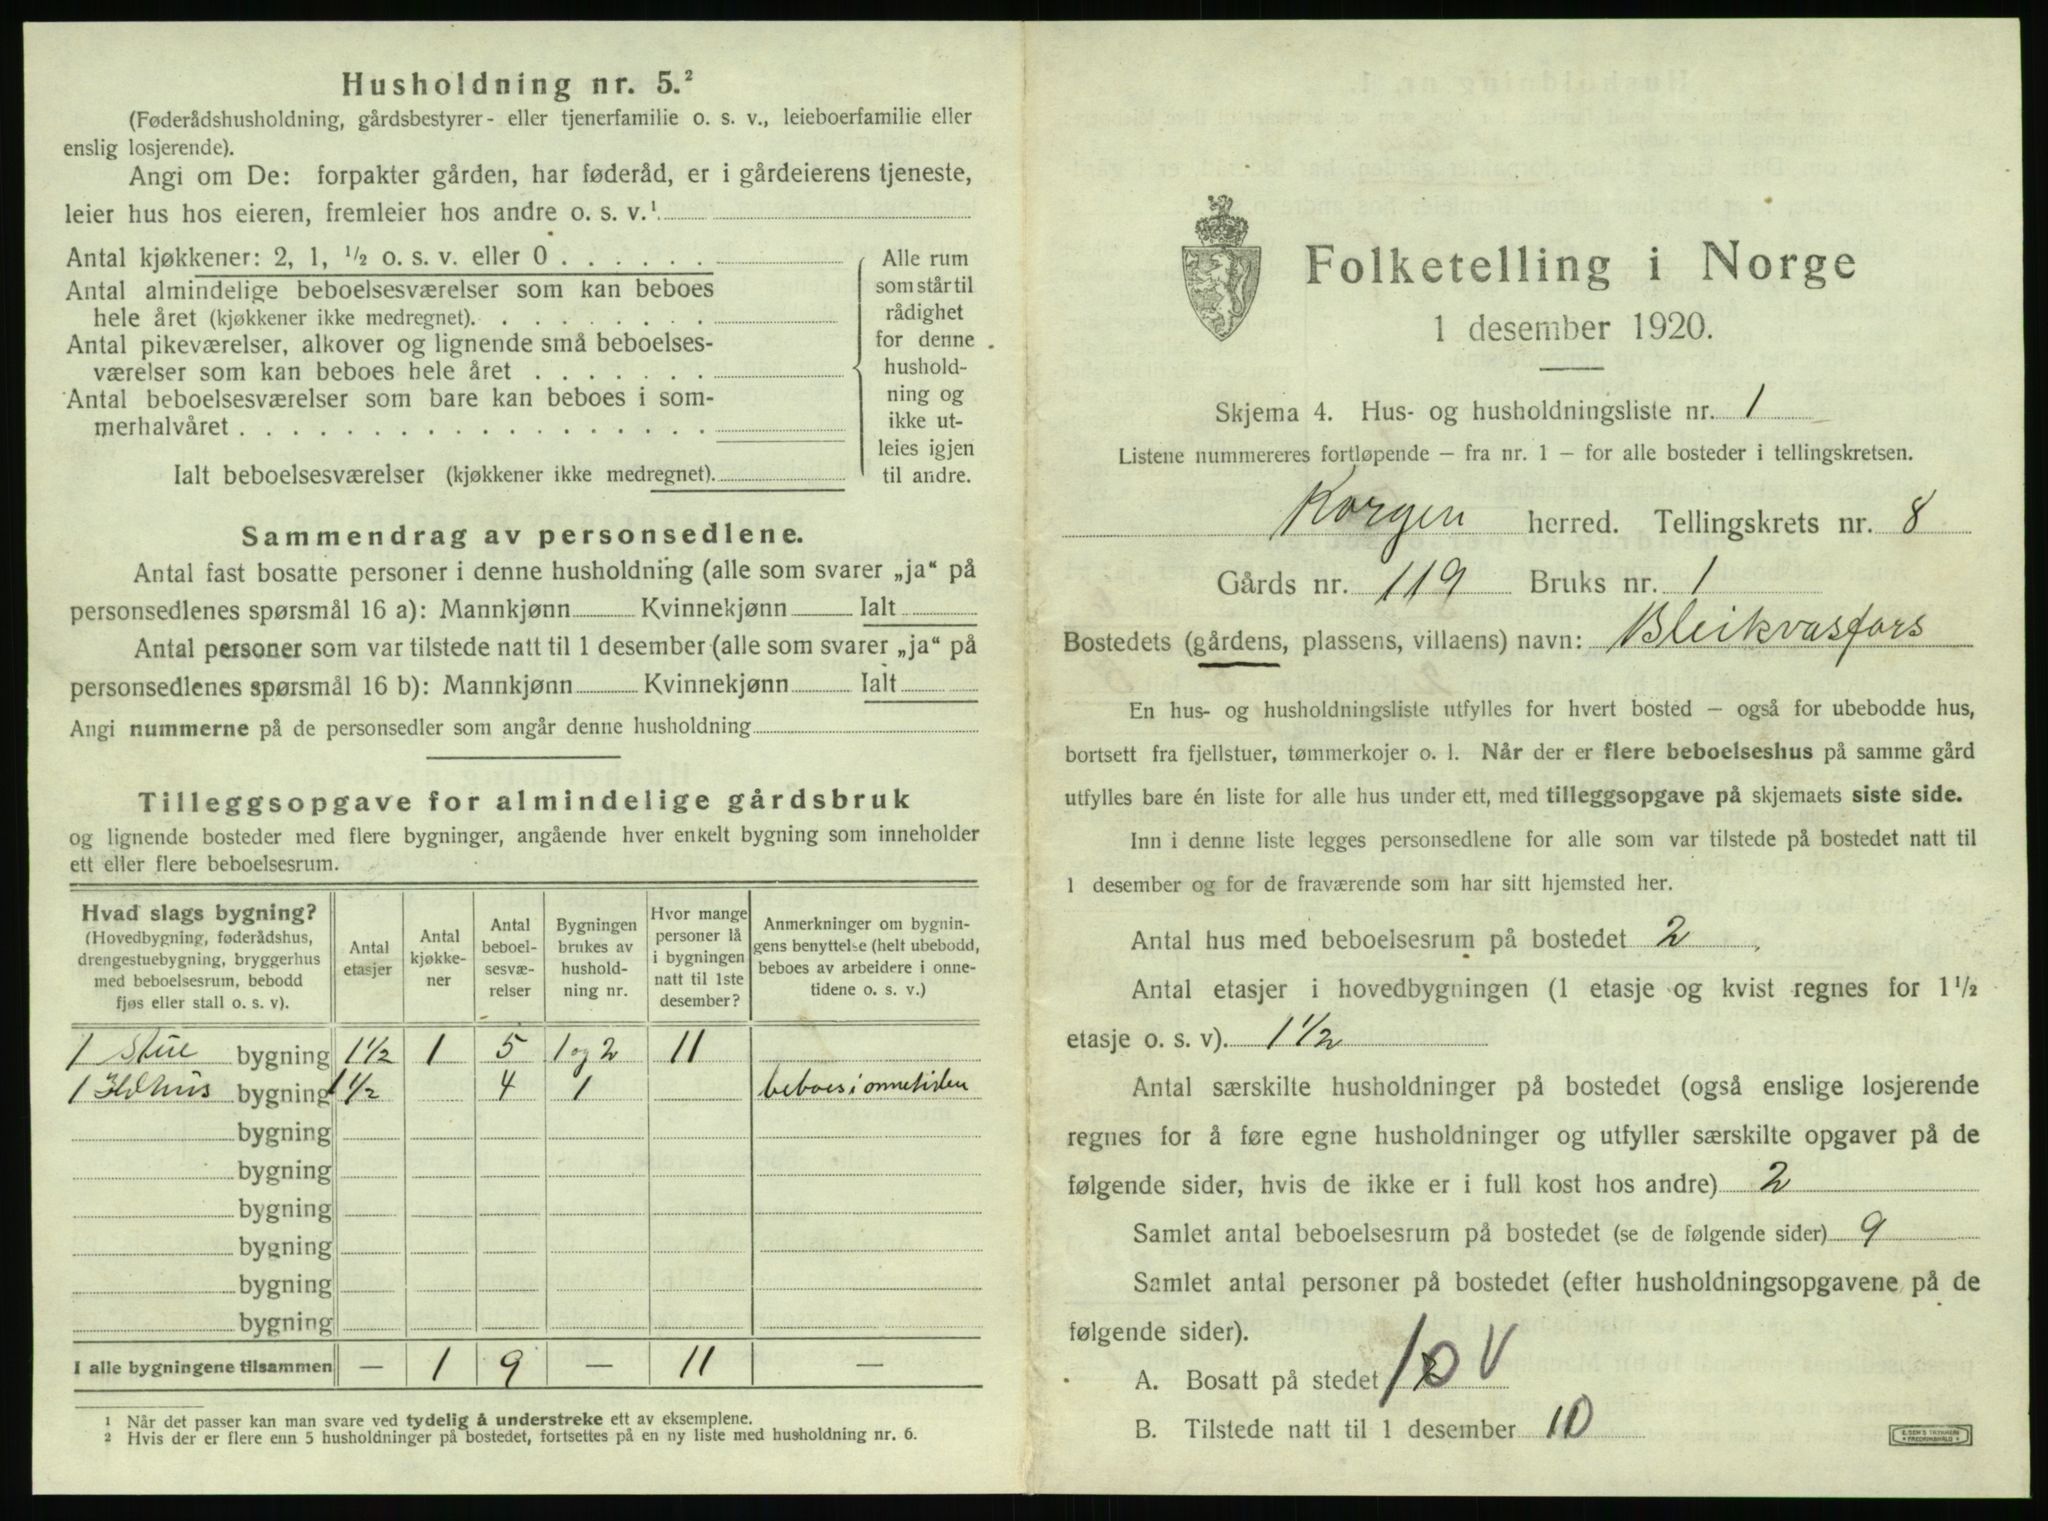 Husholdning nr. 5.²
(Føderådshusholdning, gårdsbestyrer- eller tjenerfamilie o. s. v., leieboerfamilie eller
enslig losjerende).
Angi om De: forpakter gården, har føderåd, er i gårdeierens tjeneste,
leier hus hos eieren, fremleier hos andre o. s. v.¹
Antal kjøkkener: 2, 1, ½ o. s. v. eller 0 . . . . . .
Antal almindelige beboelsesværelser som kan beboes
hele året (kjøkkener ikke medregnet). . . . . . . . .
Antal pikeværelser, alkover og lignende små beboelses-
værelser som kan beboes hele året . . . . . . .
Antal beboelsesværelser som bare kan beboes i som-
merhalvåret . . . . . . . . . . . . . . . . . .
Ialt beboelsesværelser (kjøkkener ikke medregnet).
Alle rum
som står til
rådighet
for denne
hushold-
ning og
ikke ut-
leies igjen
til andre.
Sammendrag av personsedlene.
Antal fast bosatte personer i denne husholdning (alle som svarer „ja“ på
personsedlenes spørsmål 16 a): Mannkjønn Kvinnekjønn Ialt
Antal personer som var tilstede natt til 1 desember (alle som svarer „ja“ på
personsedlenes spørsmål 16 b): Mannkjønn Kvinnekjønn Ialt
Angi nummerne på de personsedler som angår denne husholdning
Tilleggsopgave for almindelige gårdsbruk
og lignende bosteder med flere bygninger, angående hver enkelt bygning som inneholder
ett eller flere beboelsesrum.
Hvad slags bygning?
(Hovedbygning, føderådshus,
drengestuebygning, bryggerhus
med beboelsesrum, bebodd
fjøs eller stall o. s. v).
Antal
etasjer
Antal
kjøkke-
ner
Antal
beboel-
sesvæ-
relser
Bygningen
brukes av
hushold-
ning nr.
Hvor mange
personer lå
i bygningen
natt til 1ste
desember?
Anmerkninger om bygnin-
gens benyttelse (helt ubebodd,
beboes av arbeidere i onne-
tidene o. s. v.)
1 Stue bygning 1½ 1 5 1 og 2 11
1 Ildhus bygning 1½ 4 1 beboes i onnetiden
bygning
bygning
bygning
bygning
bygning
bygning
I alle bygningene tilsammen — 1 9 — 11 —
1 Når det passer kan man svare ved tydelig å understreke ett av eksemplene.
2 Hvis der er flere enn 5 husholdninger på bostedet, fortsettes på en ny liste med husholdning nr. 6.
Folketelling i Norge
1 desember 1920.
Skjema 4. Hus- og husholdningsliste nr. 1
Listene nummereres fortløpende – fra nr. 1 – for alle bosteder i tellingskretsen.
Korgen herred. Tellingskrets nr. 8
Gårds nr. 119 Bruks nr. 1
Bostedets (gårdens, plassens, villaens) navn: Bleikvasfors
En hus- og husholdningsliste utfylles for hvert bosted – også for ubebodde hus,
bortsett fra fjellstuer, tømmerkojer o. l. Når der er flere beboelseshus på samme gård
utfylles bare én liste for alle hus under ett, med tilleggsopgave på skjemaets siste side.
Inn i denne liste legges personsedlene for alle som var tilstede på bostedet natt til
1 desember og for de fraværende som har sitt hjemsted her.
Antal hus med beboelsesrum på bostedet 2
Antal etasjer i hovedbygningen (1 etasje og kvist regnes for 1½
etasje o. s. v). 1½
Antal særskilte husholdninger på bostedet (også enslige losjerende
regnes for å føre egne husholdninger og utfyller særskilte opgaver på de
følgende sider, hvis de ikke er i full kost hos andre) 2
Samlet antal beboelsesrum på bostedet (se de følgende sider) 9
Samlet antal personer på bostedet (efter husholdningsopgavene på de
følgende sider).
A. Bosatt på stedet 10 V
B. Tilstede natt til 1 desember 10